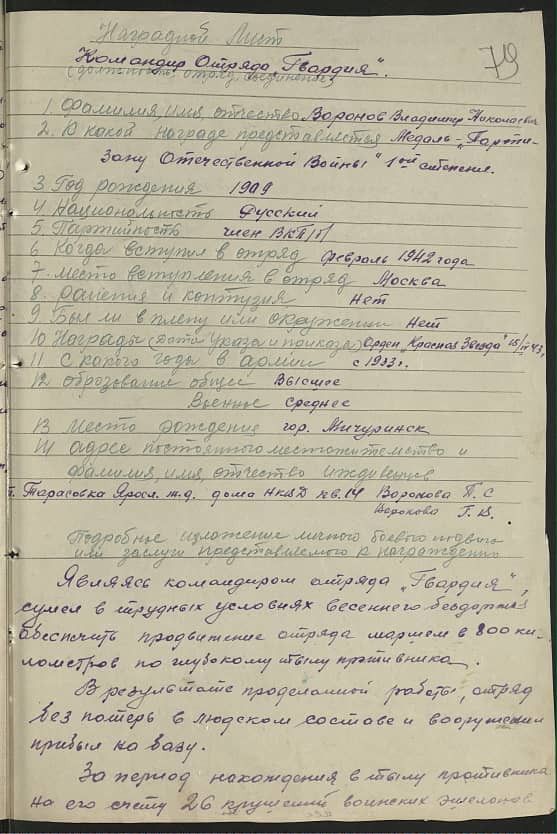 79
Наградной Лист
Командир Отряда "Гвардия".
(должность, отряд, соединение)
1. Фамилия, имя, отчество Воронов Владимир Николаевич
2. К какой награде представляется Медаль - "Парти-
зану Отечественной Войны" 1ой степени.
3. Год рождения 1909
4. Национальность Русский
5. Партийность член ВКП/б/
6. Когда вступил в отряд февраль 1942 года
7. Место вступления в отряд Москва
8. Ранения и контузия Нет
9. Был ли в плену или окружении Нет
10 Награды (дата Указа и приказа) Орден "Красная Звезда"
11 С какого года в армии с 1933 г.
12 образование общее Высшее
Военное Среднее
13 Место рождение гор. Мичуринск
14 адрес постоянного местожительство и
фамилия, имя, отчество иждивенцев
Тарасовка Яросл. ж.д. дома НКВД кв. 14 Воронова П. С
Воронова Г. В.
Подробное изложение личного боевого подвига
или заслуги представляемого к награждению
Являясь командиром отряда "Гвардия",
сумел в трудных условиях весеннего бездорожья
обеспечить продвижение отряда маршем в 800 ки-
лометров по глубокому тылу противника.
В результате проделанной работы, отряд
без потерь в людском составе и вооружении
прибыл на базу.
За период нахождения в тылу противника
на его счету 26 крушений воинских эшелонов